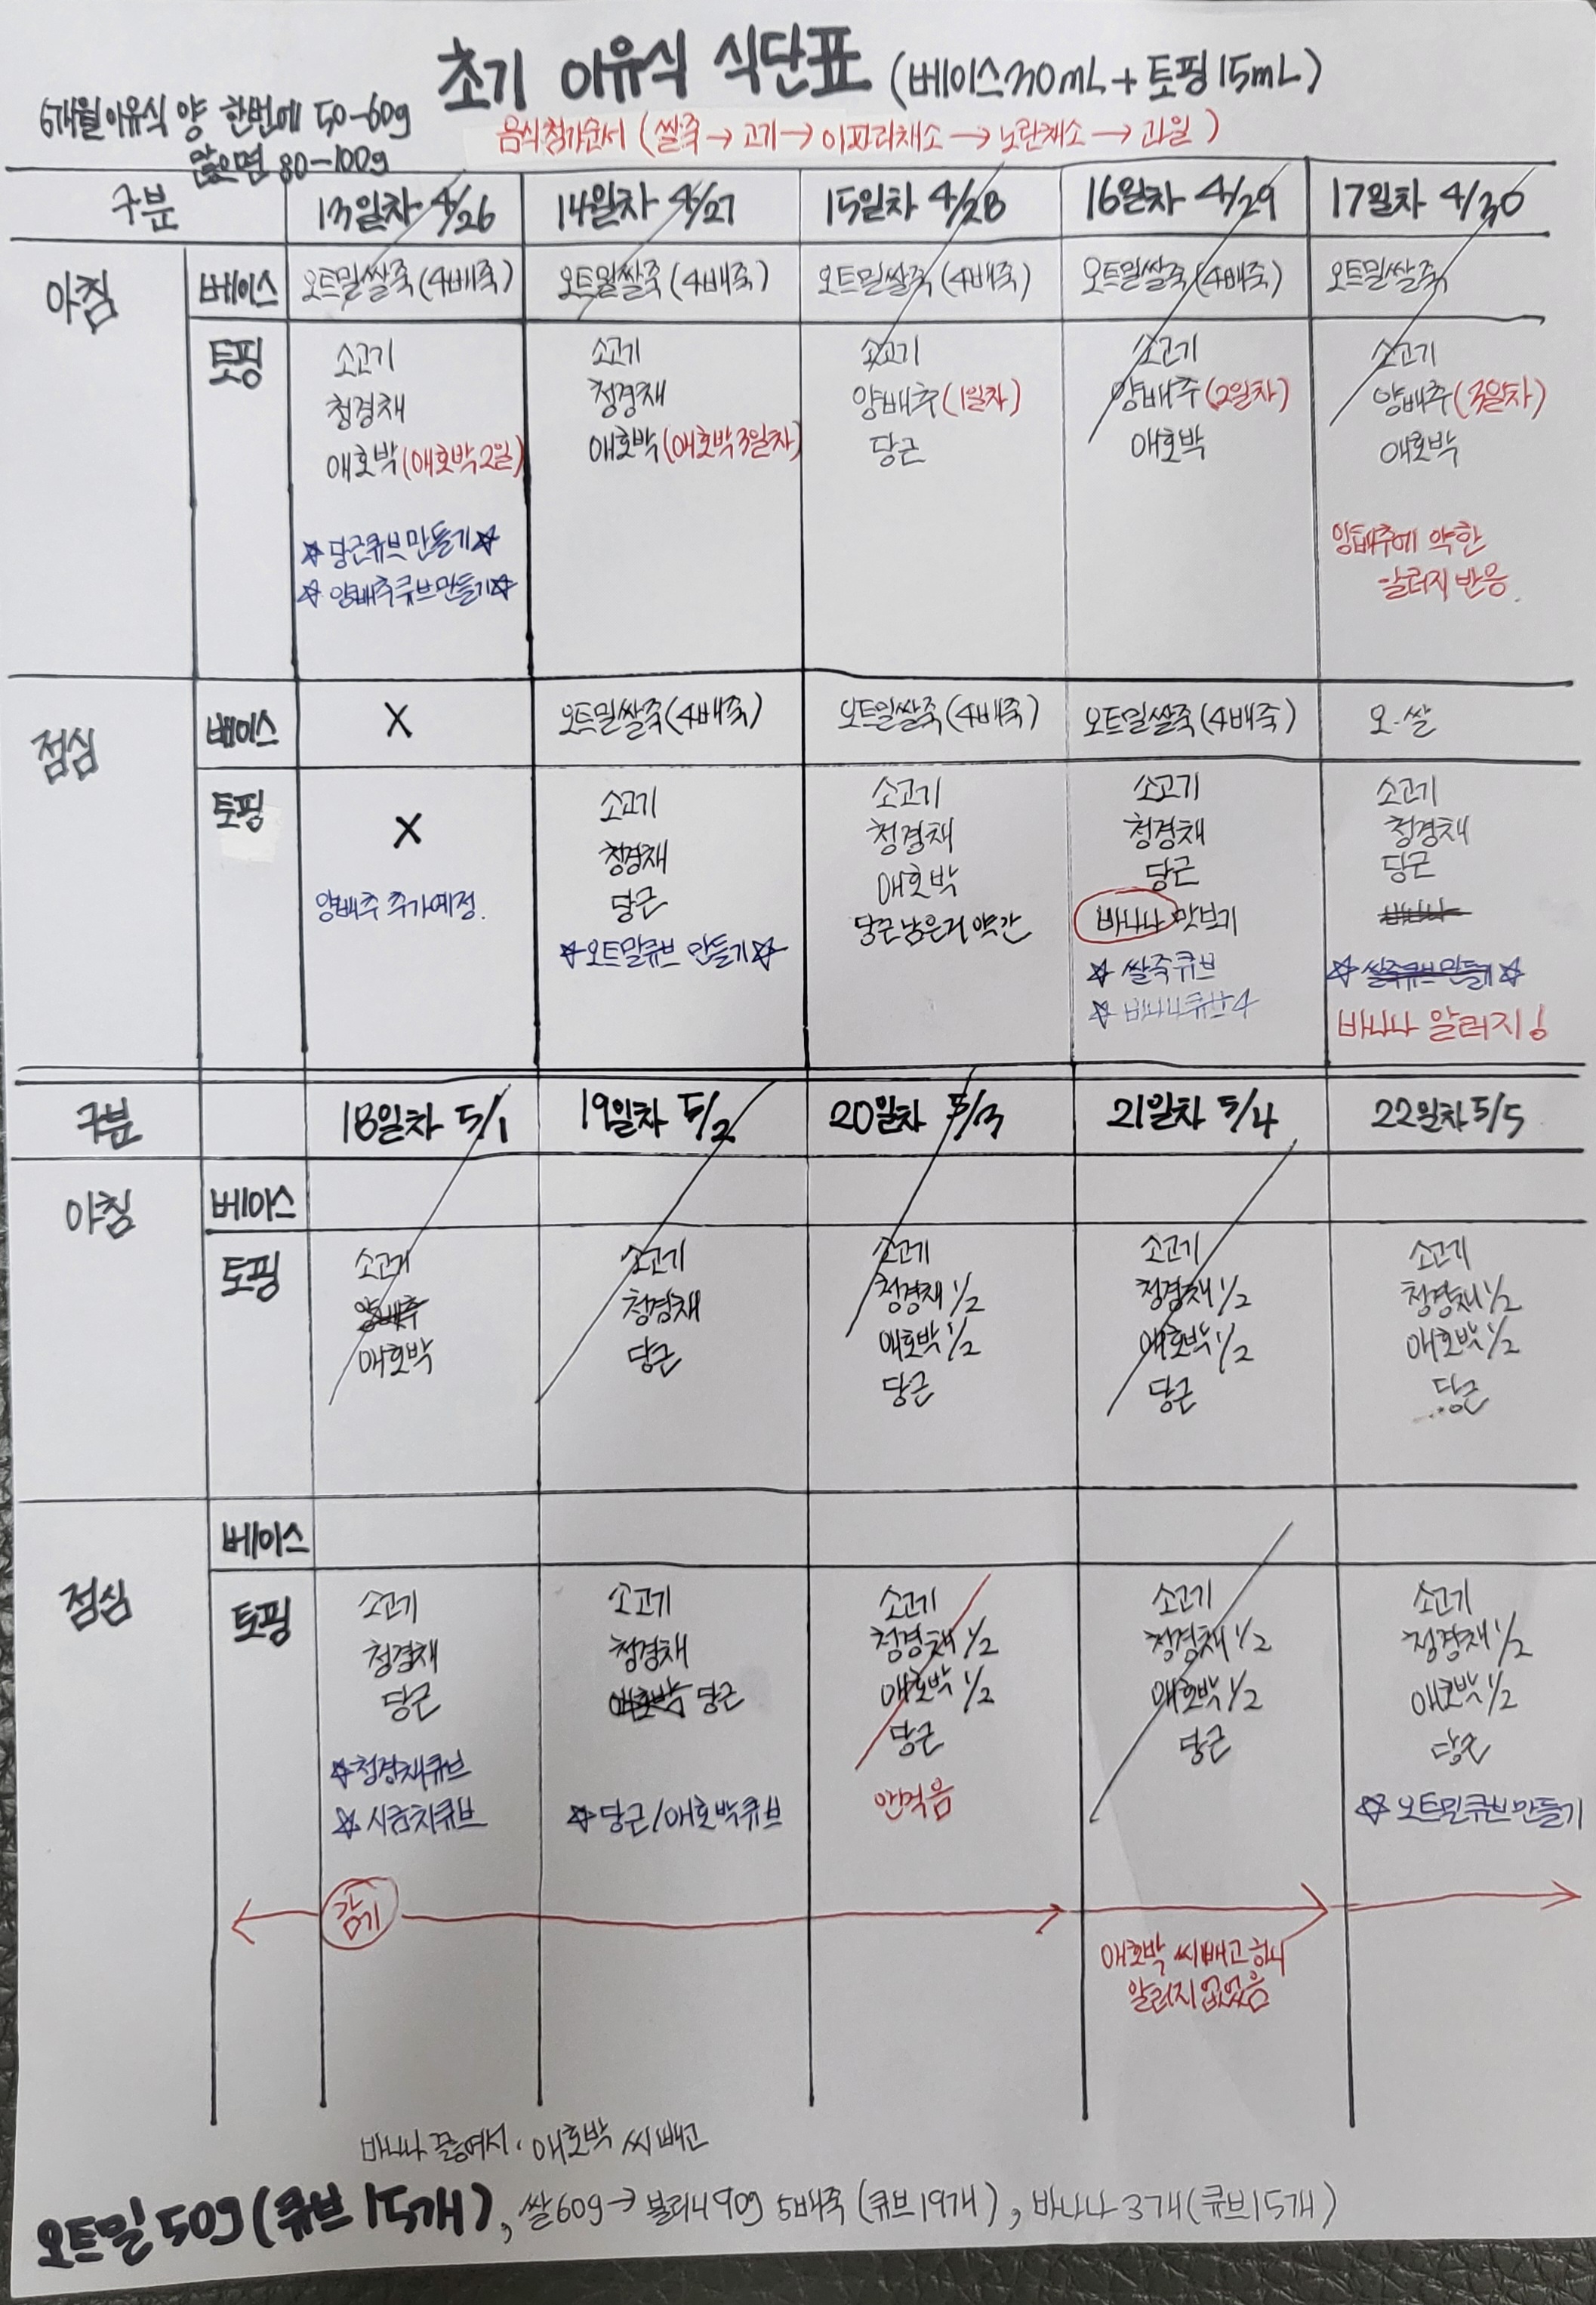 초기 이유식 식단표 (베이스30mL + 토핑15mL)
6개월이유식 양 한번에 50-60g
많으면 80-100g
음식첨가순서 (쌀죽→고기→이파리채소→노란채소→과일)
구분 13일차 4/26 14일차 4/27 15일차 4/28 16일차 4/29 17일차 4/30
아침 베이스 오트밀쌀죽(4배죽) 오트밀쌀죽(4배죽) 오트밀쌀죽(4배죽) 오트밀쌀죽(4배죽) 오트밀쌀죽
토핑 소고기 소고기 소고기 소고기 소고기
청경채 청경채 양배추(1일차) 양배추(2일차) 양배추(3일차)
애호박(애호박2일) 애호박(애호박3일차) 당근 애호박 애호박
☆당근큐브만들기☆ 양배추에 약한
☆양배추큐브만들기☆ 알러지 반응.
점심 베이스 X 오트밀쌀죽(4배죽) 오트밀쌀죽(4배죽) 오트밀쌀죽(4배죽) 오·쌀
토핑 X 소고기 소고기 소고기 소고기
청경채 청경채 청경채 청경채
양배추 추가예정. 당근 애호박 당근 당근
☆오트밀큐브 만들기☆ 당근남은거 약간 바나나 맛보기 바나나
☆쌀죽큐브 ☆쌀죽큐브만들기☆
☆바나나큐브4 바나나 알러지!
구분 18일차 5/1 19일차 5/2 20일차 5/3 21일차 5/4 22일차 5/5
아침 베이스
토핑 소고기 소고기 소고기 소고기 소고기
양배추 청경채 청경채 1/2 청경채 1/2 청경채 1/2
애호박 당근 애호박 1/2 애호박 1/2 애호박 1/2
당근 당근 당근
점심 베이스
토핑 소고기 소고기 소고기 소고기 소고기
청경채 청경채 청경채 1/2 청경채 1/2 청경채 1/2
당근 애호박 당근 애호박 1/2 애호박 1/2 애호박 1/2
당근 당근 당근
☆청경채큐브 안먹음
☆시금치큐브 ☆당근/애호박큐브 ☆오트밀큐브만들기
감기
애호박 씨빼고 하니
알러지 없었음
바나나 끓여서. 애호박 씨 빼고
오트밀50g(큐브 15개), 쌀60g→불리니90g 5배죽 (큐브19개), 바나나 3개(큐브15개)